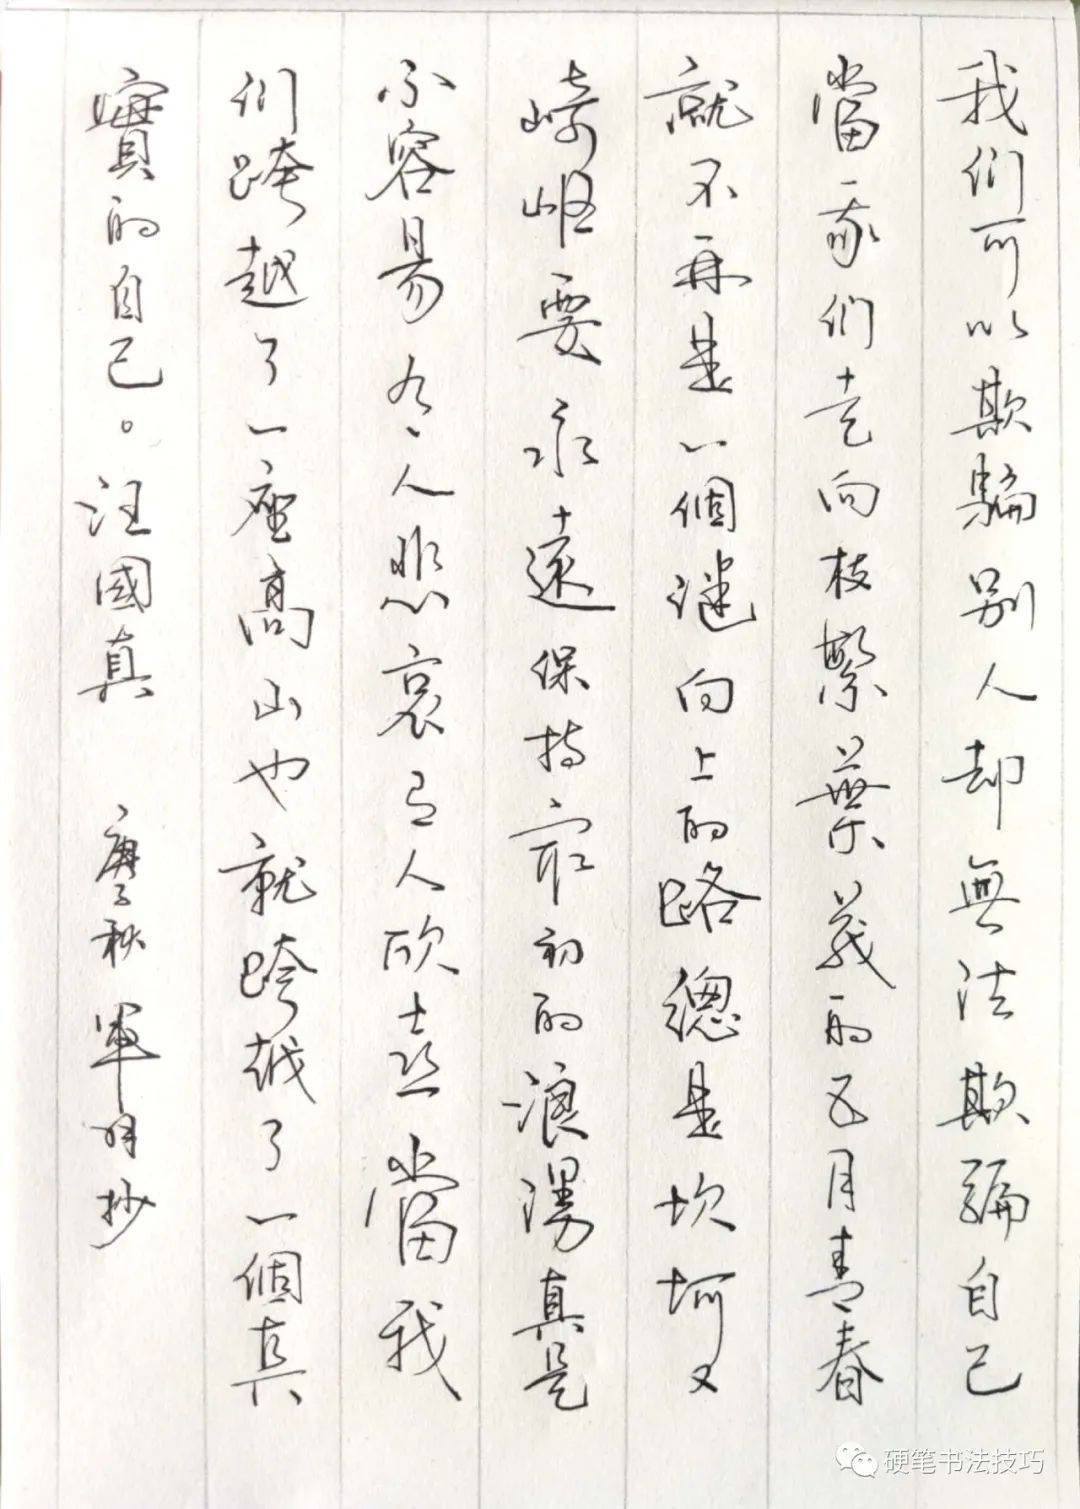 我們可以欺騙別人却無法欺騙自己
當我們走向枝繁葉茂的五月青春
就不再是一個謎向上的路總是坎坷又
崎嶇要永遠保持最初的浪漫真是
不容易有人悲哀有人欣喜當我
們跨越了一座高山也就跨越了一個真
實的自己。汪國真 庚子秋 軍抄
硬笔书法技巧